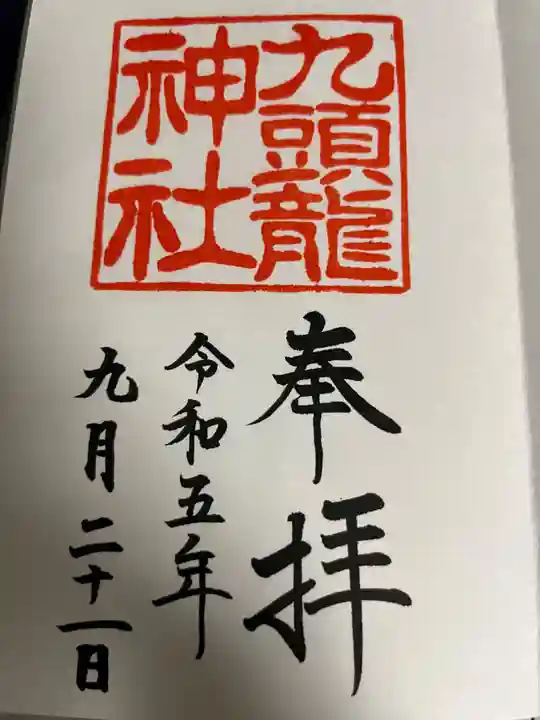 九頭龍
神社
奉拝
令和五年
九月二十一日